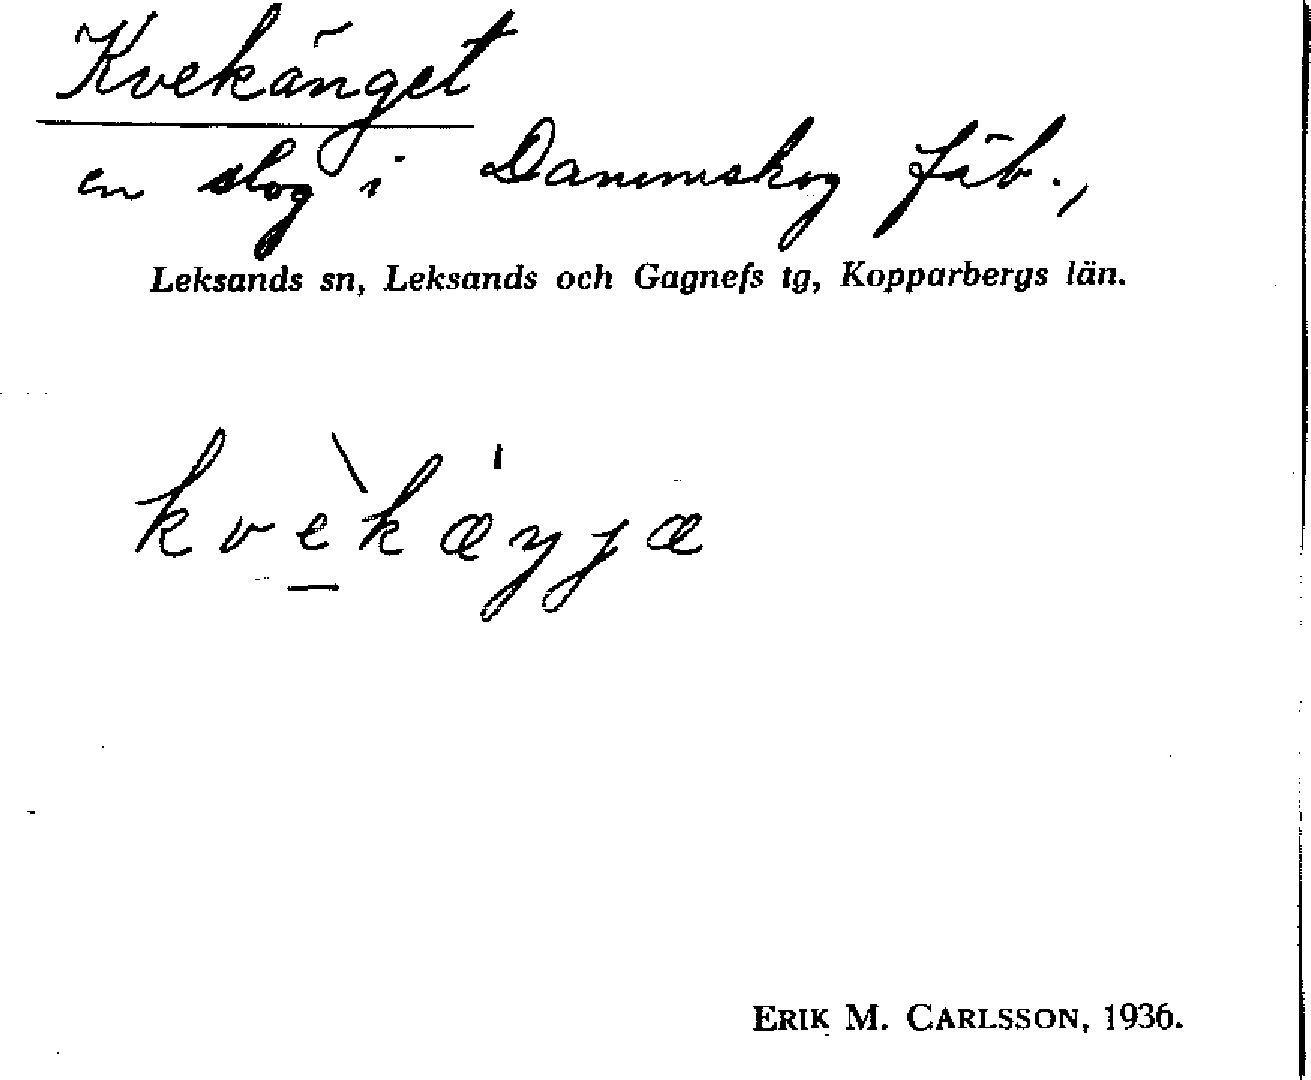 Kvekänget
en slog i Dammskog fäb.,
Leksands sn, Leksands och Gagnefs tg, Kopparbergs län.
kvèkæŋjæ
ERIK M. CARLSSON, 1936.